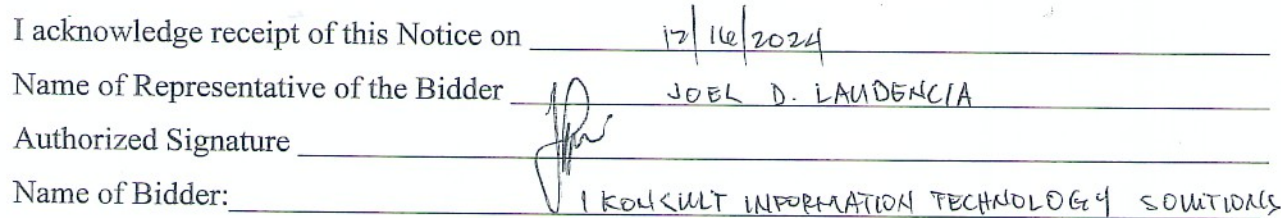 I acknowledge receipt of this Notice on 12/16/2024
Name of Representative of the Bidder JOEL D. LAUDENCIA
Authorized Signature
Name of Bidder: I KONSULT INFORMATION TECHNOLOGY SOLUTIONS